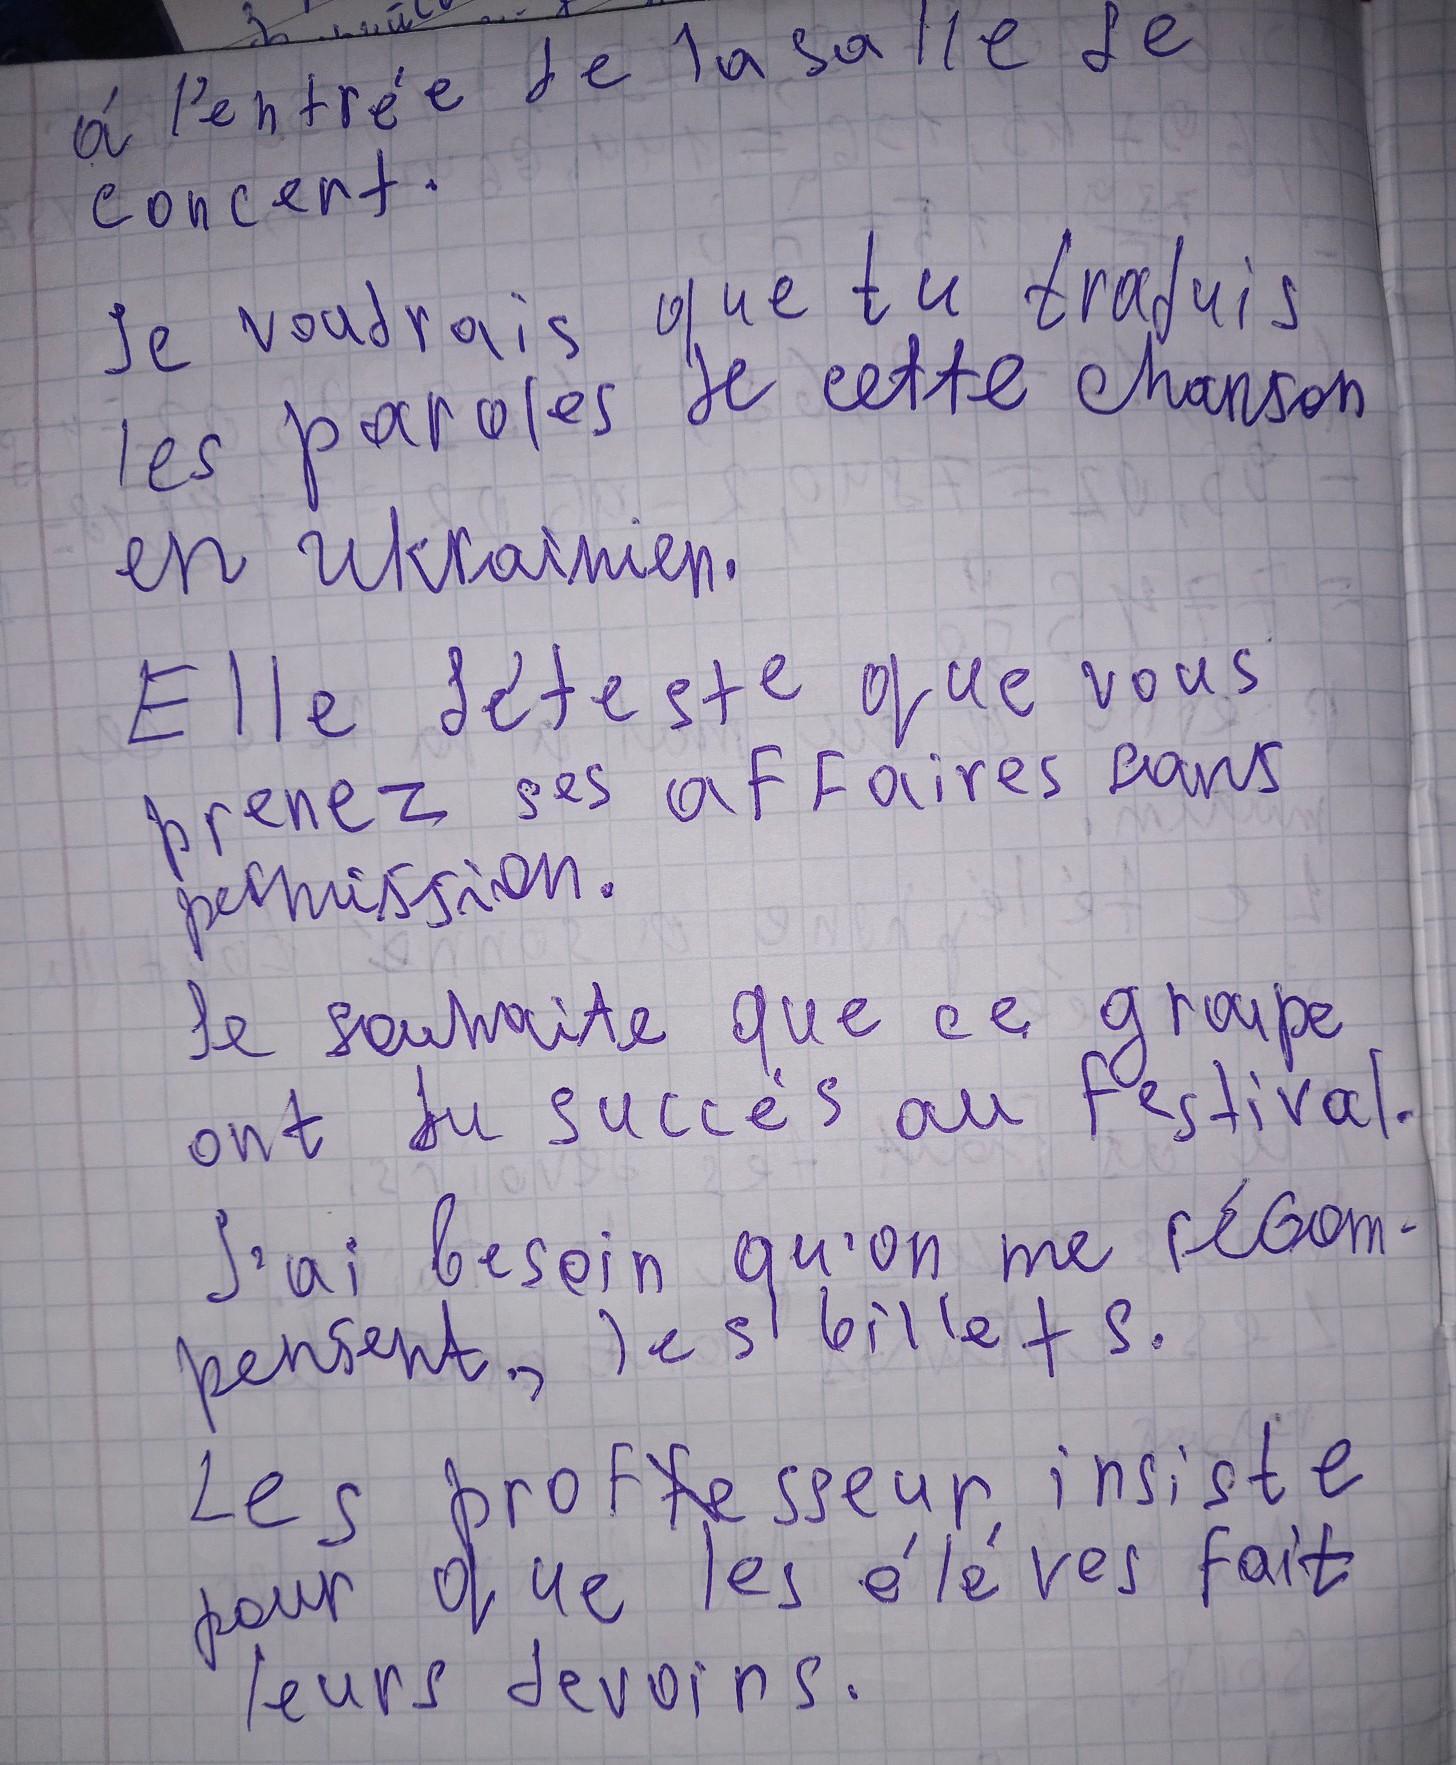 á l'entrée de la salle de
concert.
Je voudrais que tu traduis
les paroles de cette chanson
en ukrainien.
Elle déteste que vous
prenez ses affaires sans
permission.
Je souhaite que ce groupe
ont du succés au festival.
J'ai besoin qu'on me récom-
pensent, les billets.
Les proffesseur insiste
pour que les éléves fait
leurs devoirs.